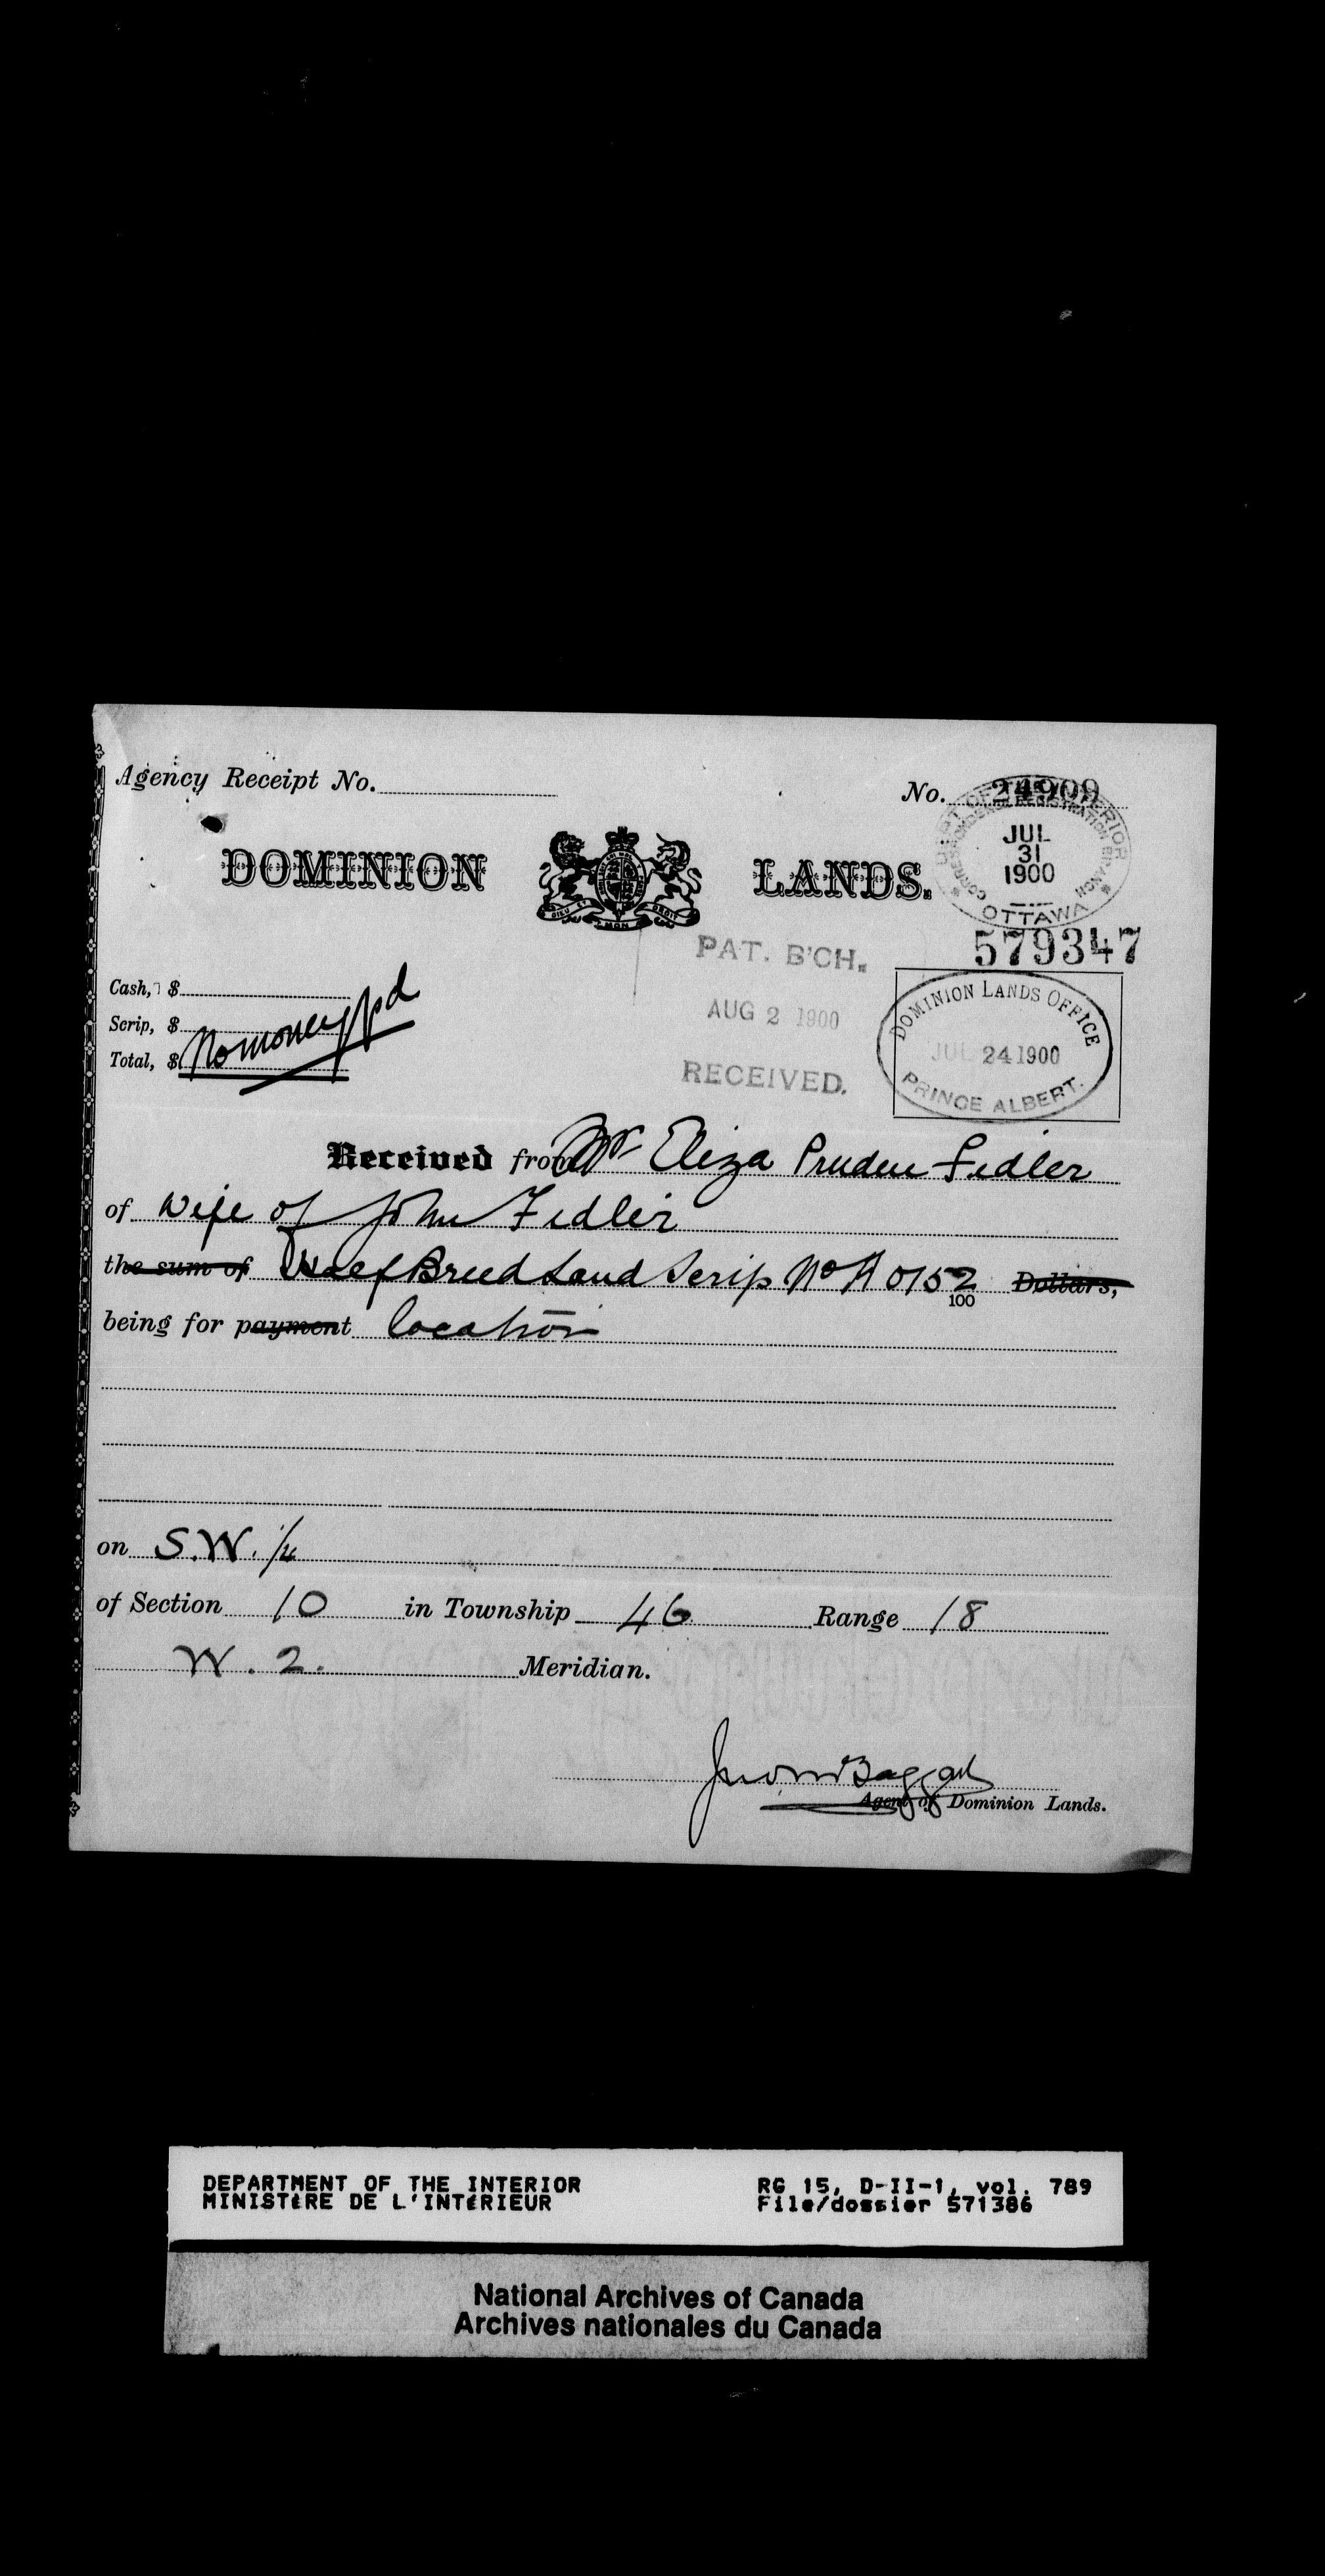 Agency Receipt No.
No. 24909
DEPT OF THE INTERIOR
CORRESPONDENCE REGISTRATION BRANCH
JUL
31
1900
OTTAWA
DOMINION LANDS.
DIEU ET MON DROIT
579347
PAT. B'CH.
AUG 2 1900
RECEIVED.
DOMINION LANDS OFFICE
JUL 24 1900
PRINCE ALBERT.
Cash, $
Scrip, $
Total, $ No money pd
Received from Eliza Pruden Fidler
of Wife of John Fidler
the sum of Half Breed Land Scrip No A 0152 Dollars,
100
being for payment location
on S.W. 1/4
of Section 10 in Township 46 Range 18
W. 2. Meridian.
Agent of Dominion Lands.
DEPARTMENT OF THE INTERIOR
MINISTÈRE DE L'INTÉRIEUR
RG 15, D-II-1, vol. 789
File/dossier 571386
National Archives of Canada
Archives nationales du Canada